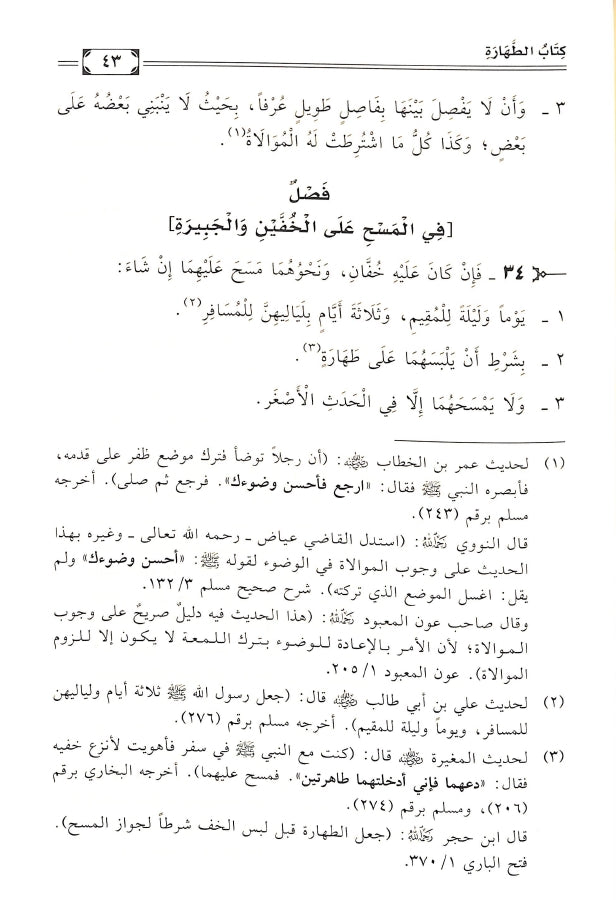 كِتَابُ الطَّهَارَةِ
٤٣
٣ ـ وَأَنْ لَا يَفْصِلَ بَيْنَهَا بِفَاصِلٍ طَوِيلٍ عُرْفاً، بِحَيْثُ لَا يَنْبَنِي بَعْضُهُ عَلَى
بَعْضٍ؛ وَكَذَا كُلُّ مَا اشْتُرِطَتْ لَهُ الْمُوَالَاةُ(١).
فَصْلٌ
[فِي الْمَسْحِ عَلَى الْخُفَّيْنِ وَالْجَبِيرَةِ]
٣٤ ـ فَإِنْ كَانَ عَلَيْهِ خُفَّانِ، وَنَحْوُهُمَا مَسَحَ عَلَيْهِمَا إِنْ شَاءَ:
١ ـ يَوْماً وَلَيْلَةً لِلْمُقِيمِ، وَثَلَاثَةَ أَيَّامٍ بِلَيَالِيهِنَّ لِلْمُسَافِرِ(٢).
٢ ـ بِشَرْطِ أَنْ يَلْبَسَهُمَا عَلَى طَهَارَةٍ(٣).
٣ ـ وَلَا يَمْسَحَهُمَا إِلَّا فِي الْحَدَثِ الْأَصْغَرِ.
(١) لحديث عمر بن الخطاب رضي الله عنه: (أن رجلاً توضأ فترك موضع ظفر على قدمه،
فأبصره النبي ﷺ فقال: «ارجع فأحسن وضوءك». فرجع ثم صلى). أخرجه
مسلم برقم (٢٤٣).
قال النووي رحمه الله: (استدل القاضي عياض ـ رحمه الله تعالى ـ وغيره بهذا
الحديث على وجوب الموالاة في الوضوء لقوله ﷺ: «أحسن وضوءك» ولم
يقل: اغسل الموضع الذي تركته). شرح صحيح مسلم ٣/ ١٣٢.
وقال صاحب عون المعبود رحمه الله: (هذا الحديث فيه دليلٌ صريحٌ على وجوب
الموالاة؛ لأن الأمر بالإعادة للوضوء بترك اللمعة لا يكون إلا للزوم
الموالاة). عون المعبود ١/ ٢٠٥.
(٢) لحديث علي بن أبي طالب رضي الله عنه قال: (جعل رسول الله ﷺ ثلاثة أيام ولياليهن
للمسافر، ويوماً وليلة للمقيم). أخرجه مسلم برقم (٢٧٦).
(٣) لحديث المغيرة رضي الله عنه قال: (كنت مع النبي ﷺ في سفر فأهويت لأنزع خفيه
فقال: «دعهما فإني أدخلتهما طاهرتين». فمسح عليهما). أخرجه البخاري برقم
(٢٠٦)، ومسلم برقم (٢٧٤).
قال ابن حجر رحمه الله: (جعل الطهارة قبل لبس الخف شرطاً لجواز المسح).
فتح الباري ١/ ٣٧٠.